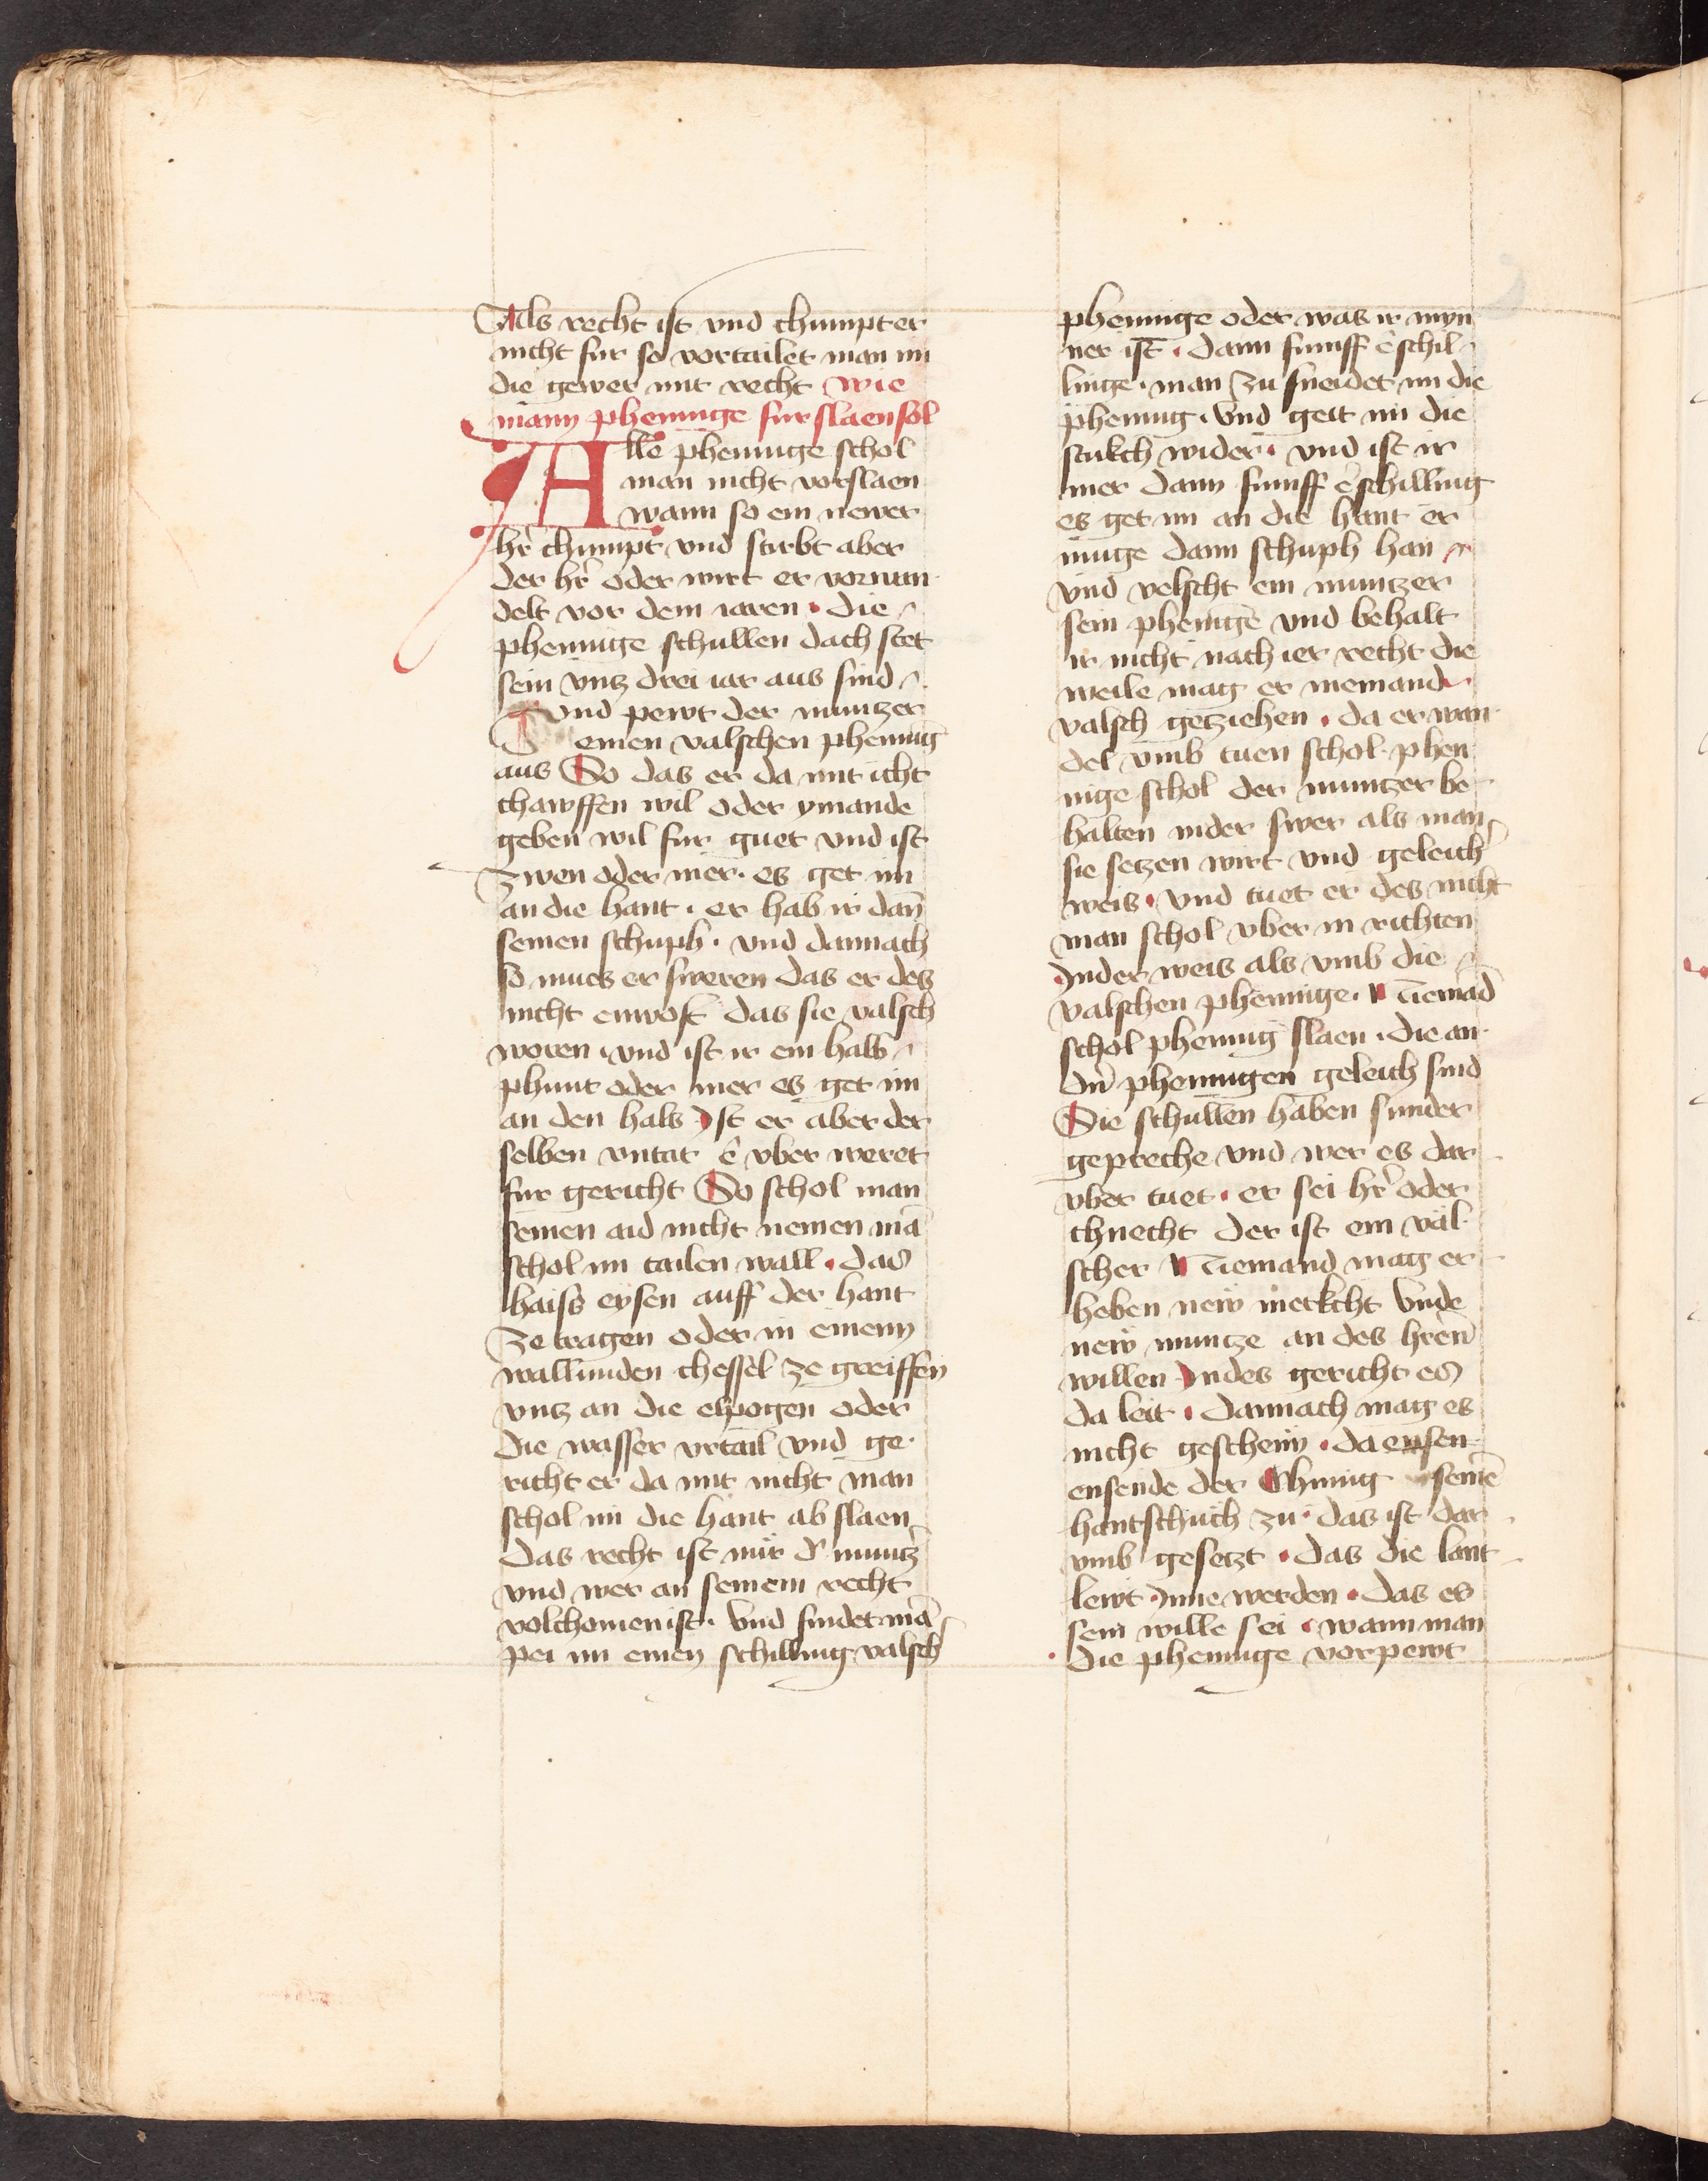 Als recht ist vnd chumpt er
nicht fur so vortailet man im
die gewer mit recht wie
mann phenninge furslaen sol
Alle phenninge schol
man nicht vorslaen
wann so ein newer
hr̄ chumpt vnd stirbt aber
der hr̄ oder wirt er vorwan
delt vor dem iaren · die
phenninge schullen dach stet
sein vntz drei iar aus sind
vnd pewt der muntzer
einen valschen phenning
aus So das er da mit icht
chawffen wil oder ymande
geben wil fur guet vnd ist
zwen oder mer · es get im
an die hant · er hab ir dan̄
seinen schuph · vnd dannach
so mues er sweren das er des
nicht enwost das sie valsch
woren · vnd ist ir ein halb
phunt oder mer es get im
an den hals Ist er aber der
selben vntat ê vber weret
fur gericht So schol man
seinen aid nicht nemen mā
schol im tailen wall · das
haiss eysen auff der hant
ze tragen oder in einem
wallunden chessel ze greiffen
vntz an die elpogen oder
die wasser vrtail vnd ge
richt er da mit nicht man
schol im die hant ab slaen
das recht ist nur d' muntz'
vnd wer an seinem recht
volchomen ist · Vnd findet mā
pei im einen schilling valsch
phenninge oder was ir myn
ner ist · dann funff ê schil
linge · man zu sneidet im die
phennig · vnd geit im die
stukch wider · vnd ist ir
mer dann funff ê schilling
es get im an die hant er
muge dann schuph han
vnd velscht ein muntzer
sein phenigē vnd behalt
ir nicht nach ier recht die
weile mag er niemand
valsch getziehen · da er wan
del vmb tuen schol · phen
nige schol der muntzer be
halten inder swer als man
sie setzen wirt vnd geleich'
weis · vnd tuet er des nicht
man schol vber in richten
Inder weis als vmb die
valschen phenninge · Niemād
schol phennig slaen · die an
dn̄ phenningen geleich sind
Die schullen haben sunder
gepreche vnd wer es dar
vber tuet · er sei hr̄ oder
chnecht der ist ein val
scher Niemand mag er
heben new merkcht vnde
new muntze an des hr̄en
willen Indes gericht es
da leit · dannach mag es
nicht geschehn · da ensen
ensende der Chunig seinē
hantschuch zu · das ist dar
vmb gesetzt · das die lant
lewt Inne werden · das es
sein wille sei · wann man
die phenninge vorpewt